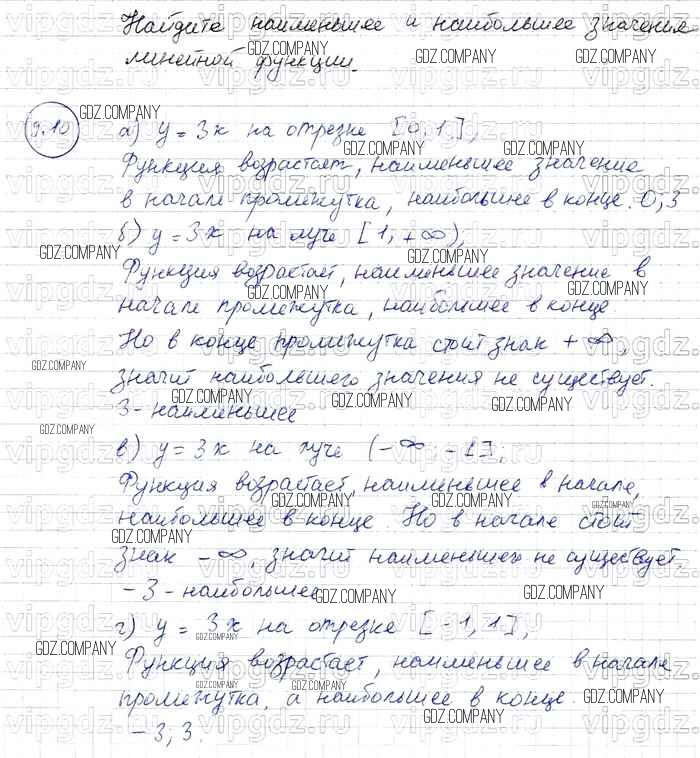 Найдите наименьшее и наибольшее значение
линейной функции.
9.10
а) y = 3x на отрезке [0, 1],
Функция возрастает, наименьшее значение
в начале промежутка, наибольшее в конце. 0; 3
б) y = 3x на луче [1, +∞),
Функция возрастает, наименьшее значение в
начале промежутка, наибольшее в конце
Но в конце промежутка стоит знак + ∞,
значит наибольшего значения не существует.
3 - наименьшее
в) y = 3x на луче (-∞, -1],
Функция возрастает, наименьшее в начале,
наибольшее в конце. Но в начале стоит
знак -∞, значит наименьшего не существует.
-3 - наибольшее
г) y = 3x на отрезке [-1, 1],
Функция возрастает, наименьшее в начале
промежутка, а наибольшее в конце.
-3; 3.